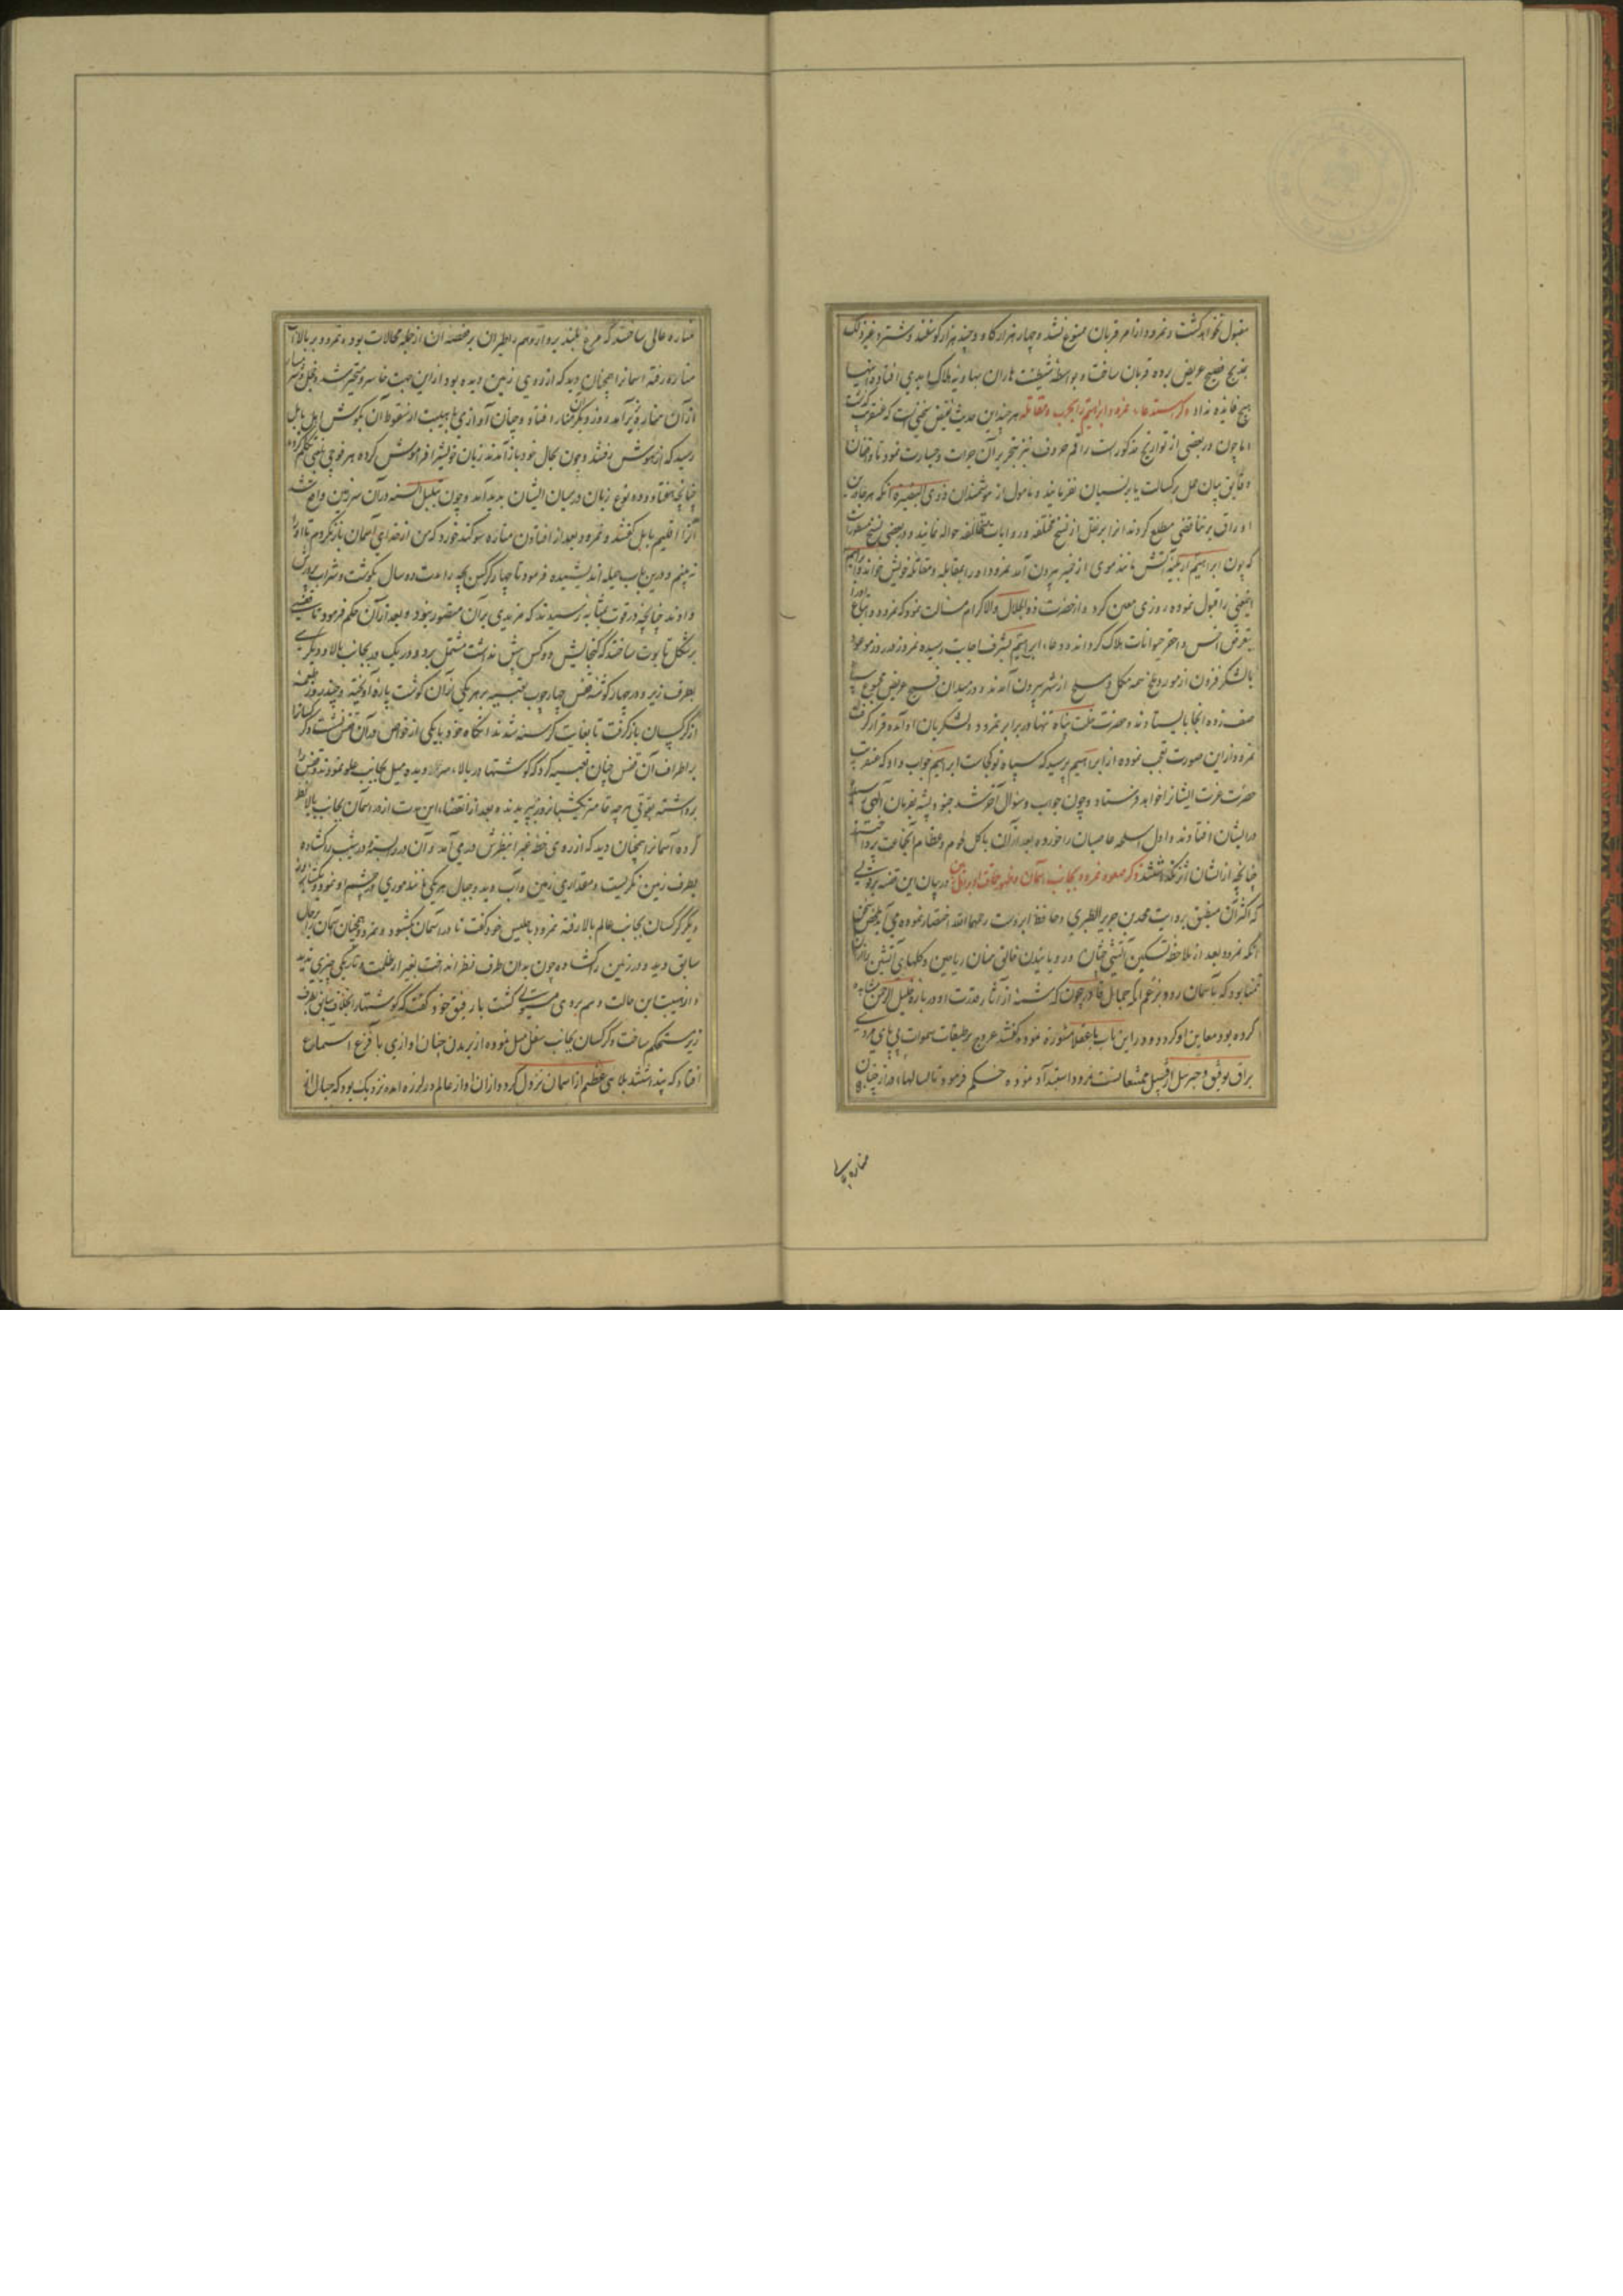 مقبول نخواهد گشت و نمرود از امر قربان ممنوع نشد و چهار هزار گاو و چند هزار گوسفند و شتر و غیر ذلک
بمذبح فسیح عریض برده قربان ساخت و بواسطه شیطنت هاران بهاویه هلاک ابدی افتاده اینها
هیچ فایده نداد ذکر استدعاء نمرود ابراهیم را بحرب و مقاتله هر چند این حدیث نقیض سخنی است که عنقریب گذشت
اما چون در بعضی از تواریخ مذکور است راقم حروف نیز بتحریر آن جرات و جسارت نمود تا واقفان
دقایق بیان حمل بر کسالت یا بر نسیان نفرمایند و مامول از هوشمندان ذوی البصیره آنکه هرگاه درین
اوراق بر تناقضی مطلع گردند آنرا بر نقل از نسخ مختلفه و روایات متخالفه حواله نمایند و در بعضی نسخ مسطورست
که چون ابراهیم از بلیه آتش مانند موی از خمیر بیرون آمد نمرود او را بمقابله و مقاتله خویش خواند و ابراهیم
اینمعنی را قبول نموده روزی معین کرد و از حضرت ذوالجلال والاکرام مسالت نمود که نمرود و اتباع او را
بتعرض اخس و احقر حیوانات هلاک گرداند و دعاء ابراهیم بشرف اجابت رسیده نمرود در روز موعود
با لشکر فزون از مور و ملخ همه مکمل و مسلح از شهر بیرون آمدند و در میدان فسیح عریض مجموع سپاه
صف زده آنجا بایستادند و حضرت خلت پناه تنها در برابر نمرود و لشکریان او آمده قرار گرفت
نمرود از این صورت تعجب نموده از ابراهیم پرسید که سپاه تو کجاست ابراهیم جواب داد که عنقریب
حضرت عزت ایشانرا خواهد فرستاد و چون جواب و سوال آخر شد جنود پشه بفرمان الهی
در ایشان افتادند و اول اسلحه عاصیان را خورده بعد از آن باکل لحوم و عظام آنجماعت پرداختند
چنانچه از ایشان اثر نگذاشتند ذکر صعود نمرود بجانب آسمان و ظهور حماقت او بر اهل جهان در بیان این قصه بروایتی
که اکثر آن منطبق بروایت محمد بن جریر الطبری و حافظ ابروست رحمهما الله اختصار نموده می آید
آنکه نمرود بعد از ملاحظه تسکین آتشی چنان و رویانیدن خالق منان ریاحین و گلهای آتشین را
تمنا بود که بآسمان رود و بزعم آنکه جمال قادر بیچون که شمه از آثار قدرت او درباره خلیل الرحمن مشاهده
کرده بود معاین او گردد و در این باب با عقلا مشورت نموده گفتند عروج بر طبقات سموات بی پای مردی
براق توفیق و جبرئیل از قبیل ممتنعاتست نمرود استبداد نموده حکم فرمود تا بسالها دراز چنان
مناره عالی
مناره عالی ساختند که مرغ بلند پرواز وهم را طیران بر غصنه آن از جمله محالات بود و نمرود بر بالای
مناره رفته آسمانرا همچنان دید که از روی زمین دیده بود از این جهت خاسر و متحیر شد و خجل و شرمسار
از آن مناره بزیر آمد روز دیگر آن مناره افتاد و چنان آوازی با هیبت از سقوط آن بگوش اهل بابل
رسید که از هوش رفتند و چون بحال خود باز آمدند زبان خویش را فراموش کرده هر فوجی بلغتی تکلم کردند
چنانچه هفتاد و دو نوع زبان در میان ایشان پدید آمد و چون تبلبل السنه در آن سرزمین واقع شد
آنرا اقلیم بابل گفتند و نمرود بعد از افتادن مناره سوگند خورد که من از خدای آسمان باز نگردم تا او را
نه بینم و درین باب حیله اندیشیده فرمود تا چهار کرکس بچه را مدت ده سال بگوشت و شراب پرورش
دادند چنانچه در قوت بمثابه رسیدند که مزیدی بر آن متصور نبود و بعد از آن حکم فرمود تا قفسی
بر شکل تابوت ساختند که گنجایش دو کس بیش نداشت مشتمل بر دو در یک در بجانب بالا و دیگری
بطرف زیر و در چهار گوشه قفس چهار چوب تعبیه بر هر یکی از آن گوشت پاره آویخته و چند روز طعمه
از کرکسان باز گرفت تا بغایت گرسنه شدند آنگاه خود با یکی از خواص در آن قفس نشست و کرکسانرا
بر اطراف آن قفس چنان تعبیه کرد که گوشتها در بالاء سر دیده میل بجانب علو نمودند و قفس را
برداشته بقوتی هر چه تمامتر یکشبانروز بپریدند و بعد از انقضاء این مدت از در آسمان بجانب بالا نظر
کرده آسمانرا همچنان دید که از روی خطه غبرا بنظرش در می آمد و آن در بسته و در شیب را گشاده
بطرف زمین نگریست و مقداری زمین و آب دید و جبال هر یکی مانند موری در چشم او نمود و یکشبانروز
دیگر کرکسان بجانب عالم بالا رفته نمرود با جلیس خود گفت تا در آسمان بگشود و نمرود همچنان آسمان بر حال
سابق دید و در زمین را گشاده چون بدان طرف نظر انداخت بغیر از ظلمت و تاریکی چیزی ندید
و از هیبت این حالت وهم بروی مستولی گشت با رفیق خود گفت که گوشتها را بخلاف سابق بطرف
زیر مستحکم ساخت و کرکسان بجانب سفل میل نموده از پریدن چنان آوازی با فزع در اسماع
افتاد که پنداشتند بلای عظیم از آسمان نزول کرد و از آن آواز عالم در لرزه آمده نزدیک بود که جبال از